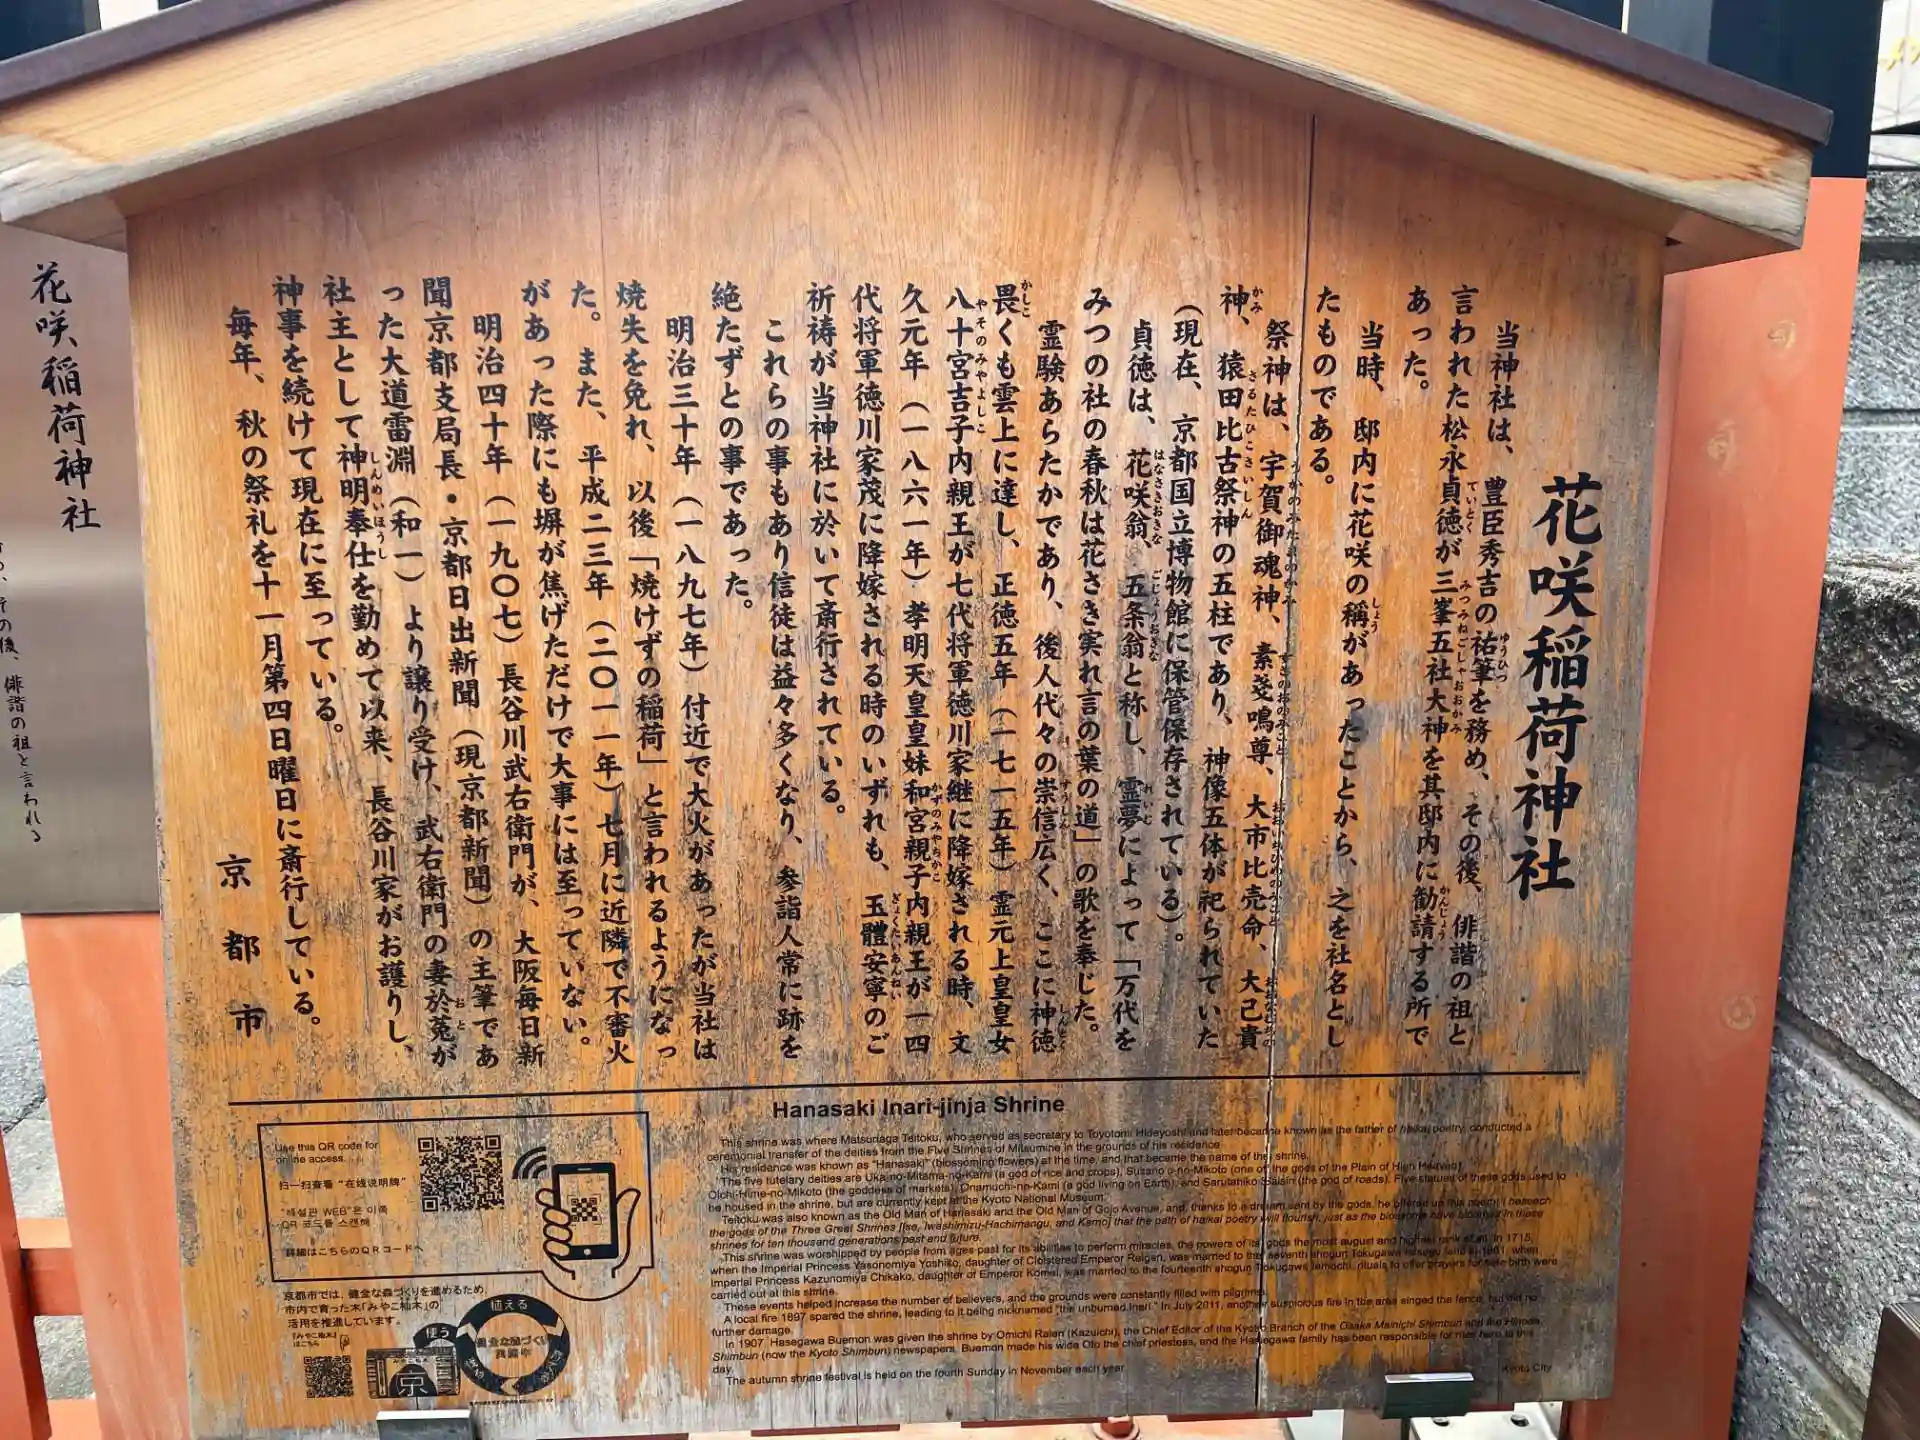 花咲稲荷神社
当神社は、豊臣秀吉の祐筆を務め、その後、俳諧の祖と
言われた松永貞徳が三峯五社大神を其邸内に勧請する所で
あった。
当時、邸内に花咲の稱があったことから、之を社名とし
たものである。
祭神は、宇賀御魂神、素戔鳴尊、大市比売命、大己貴
神、猿田比古祭神の五柱であり、神像五体が祀られていた
(現在、京都国立博物館に保管保存されている)。
貞徳は、花咲翁、五条翁と称し、霊夢によって「万代を
みつの社の春秋は花さき実れ言の葉の道」の歌を奉じた。
霊験あらたかであり、後人代々の崇信広く、ここに神徳
畏くも雲上に達し、正徳五年(一七一五年)霊元上皇皇女
八十宮吉子内親王が七代将軍徳川家継に降嫁される時、文
久元年(一八六一年)孝明天皇皇妹和宮親子内親王が一四
代将軍徳川家茂に降嫁される時のいずれも、玉體安寧のご
祈祷が当神社に於いて斎行されている。
これらの事もあり信徒は益々多くなり、参詣人常に跡を
絶たずとの事であった。
明治三十年(一八九七年)付近で大火があったが当社は
焼失を免れ、以後「焼けずの稲荷」と言われるようになっ
た。また、平成二三年(二〇一一年)七月に近隣で不審火
があった際にも塀が焦げただけで大事には至っていない。
明治四十年(一九〇七)長谷川武右衛門が、大阪毎日新
聞京都支局長・京都日出新聞(現京都新聞)の主筆であ
った大道雷淵(和一)より譲り受け、武右衛門の妻於菟が
社主として神明奉仕を勤めて以来、長谷川家がお護りし、
神事を続けて現在に至っている。
毎年、秋の祭礼を十一月第四日曜日に斎行している。
京都市
花咲稲荷神社
の後、俳諧の祖と言われる
Hanasaki Inari-jinja Shrine
This shrine was where Matsunaga Teitoku, who served as secretary to Toyotomi Hideyoshi and later became known as the father of haikai poetry, conducted a
ceremonial transfer of the deities from the Five Shrines of Mitsumine in the grounds of his residence.
His residence was known as "Hanasaki" (blossoming flowers) at the time, and that became the name of the shrine.
The five tutelary deities are Uka-no-Mitama-no-Kami (a god of rice and crops), Susano-o-no-Mikoto (one of the gods of the Plain of High Heaven),
Oichi-Hime-no-Mikoto (the goddess of markets), Onamuchi-no-Kami (a god living on Earth), and Sarutahiko-Saishin (the god of roads). Five statues of these gods used to
be housed in the shrine, but are currently kept at the Kyoto National Museum.
Teitoku was also known as the Old Man of Hanasaki and the Old Man of Gojo Avenue, and, thanks to a dream sent by the gods, he offered up this poem: I beseech
the gods of the Three Great Shrines [Ise, Iwashimizu-Hachimangu, and Kamo] that the path of haikai poetry will flourish, just as the blossoms have bloomed in these
shrines for ten thousand generations past and future.
This shrine was worshipped by people from ages past for its abilities to perform miracles, the powers of its gods the most august and highest rank of all. In 1715,
when the Imperial Princess Yasonomiya Yoshiko, daughter of Cloistered Emperor Reigen, was married to the seventh shogun Tokugawa Ietsugu (and in 1861, when
Imperial Princess Kazunomiya Chikako, daughter of Emperor Komei, was married to the fourteenth shogun Tokugawa Iemochi, rituals to offer prayers for safe birth were
carried out at this shrine.
These events helped increase the number of believers, and the grounds were constantly filled with pilgrims.
A local fire 1897 spared the shrine, leading to it being nicknamed "the unburned Inari." In July 2011, another suspicious fire in the area singed the fence, but did no
further damage.
In 1907, Hasegawa Buemon was given the shrine by Omichi Raien (Kazuichi), the Chief Editor of the Kyoto Branch of the Osaka Mainichi Shimbun and the Hinode
Shimbun (now the Kyoto Shimbun) newspapers. Buemon made his wide Oto the chief priestess, and the Hasegawa family has been responsible for rites here to this
day.
The autumn shrine festival is held on the fourth Sunday in November each year.
Kyoto City
Use this QR code for
online access.
扫一扫查看“在线说明牌”
"해설판 WEB"은 이쪽
QR 코드를 스캔해
詳細はこちらのQRコードへ
京都市では、健全な森づくりを進めるため、
市内で育った木「みやこ杣木」の
活用を推進しています。
「みやこ杣木」
はこちら
使う
植える
健全な森づくり
京